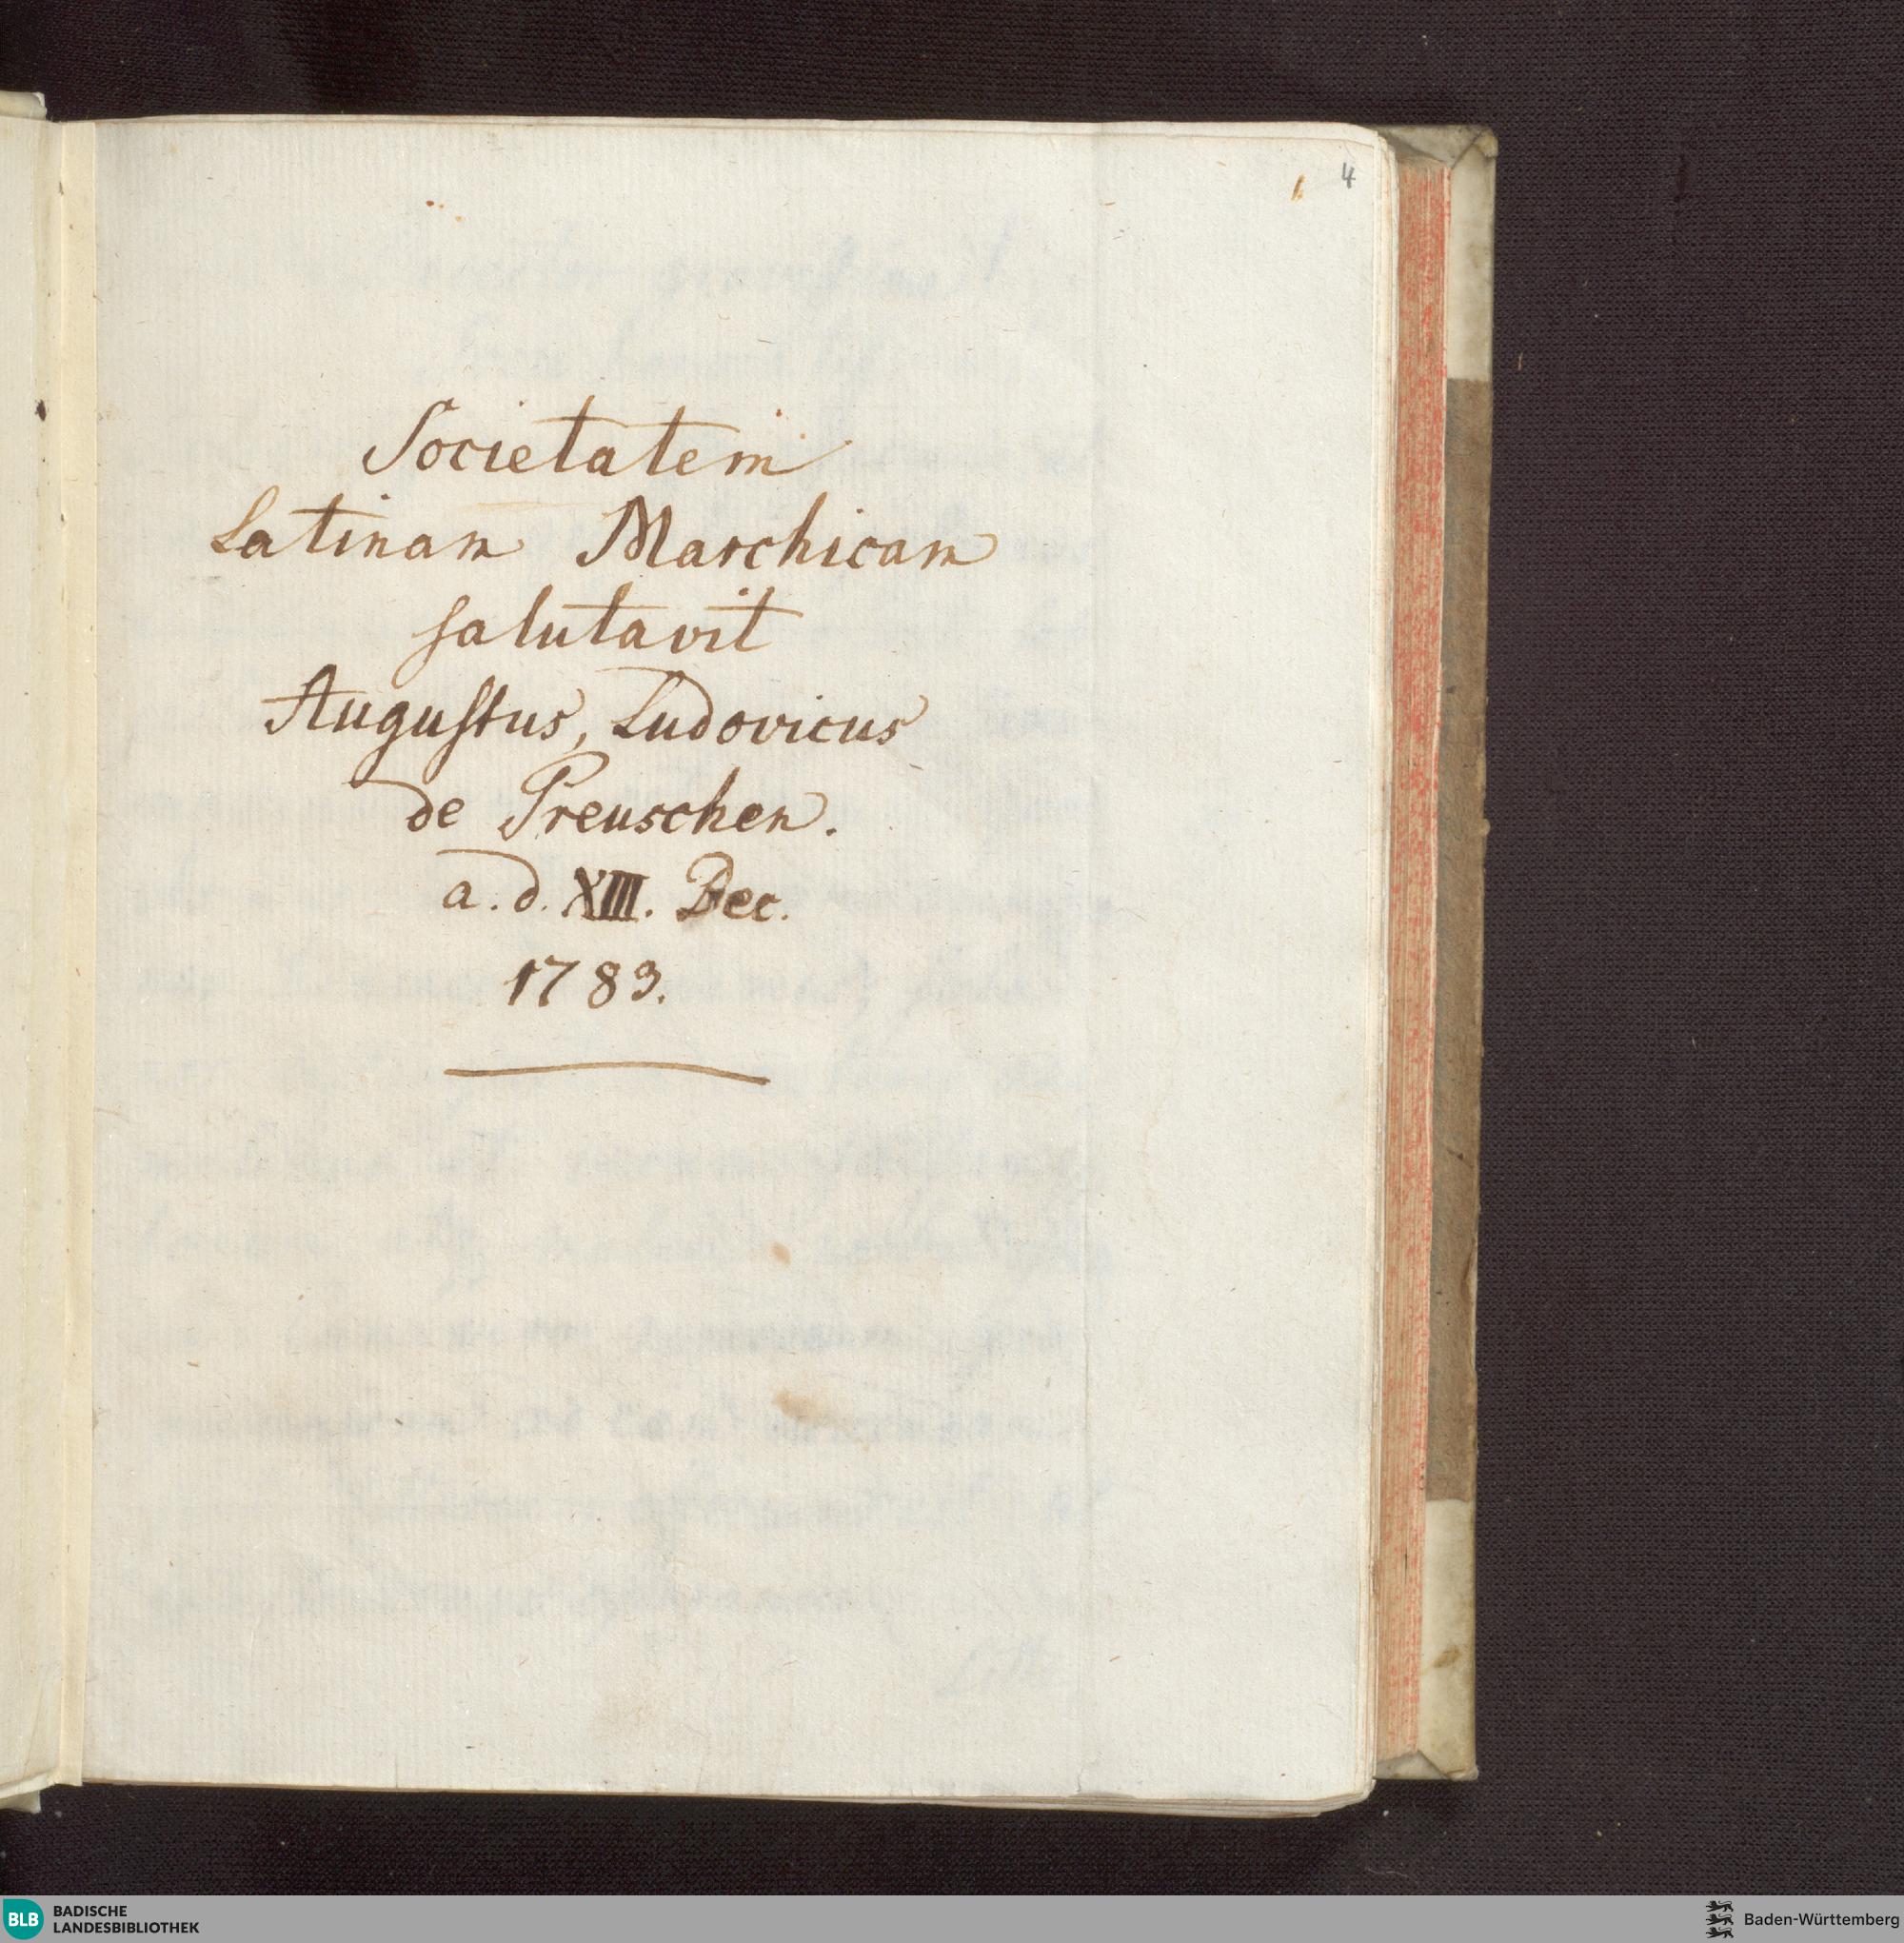 1. 4
Societatem
Latinam Marchicam
salutavit
Augustus, Ludovicus
de Preuschen.
a. d. XIII. Dec.
1783.
BLB BADISCHE
LANDESBIBLIOTHEK
Baden-Württemberg